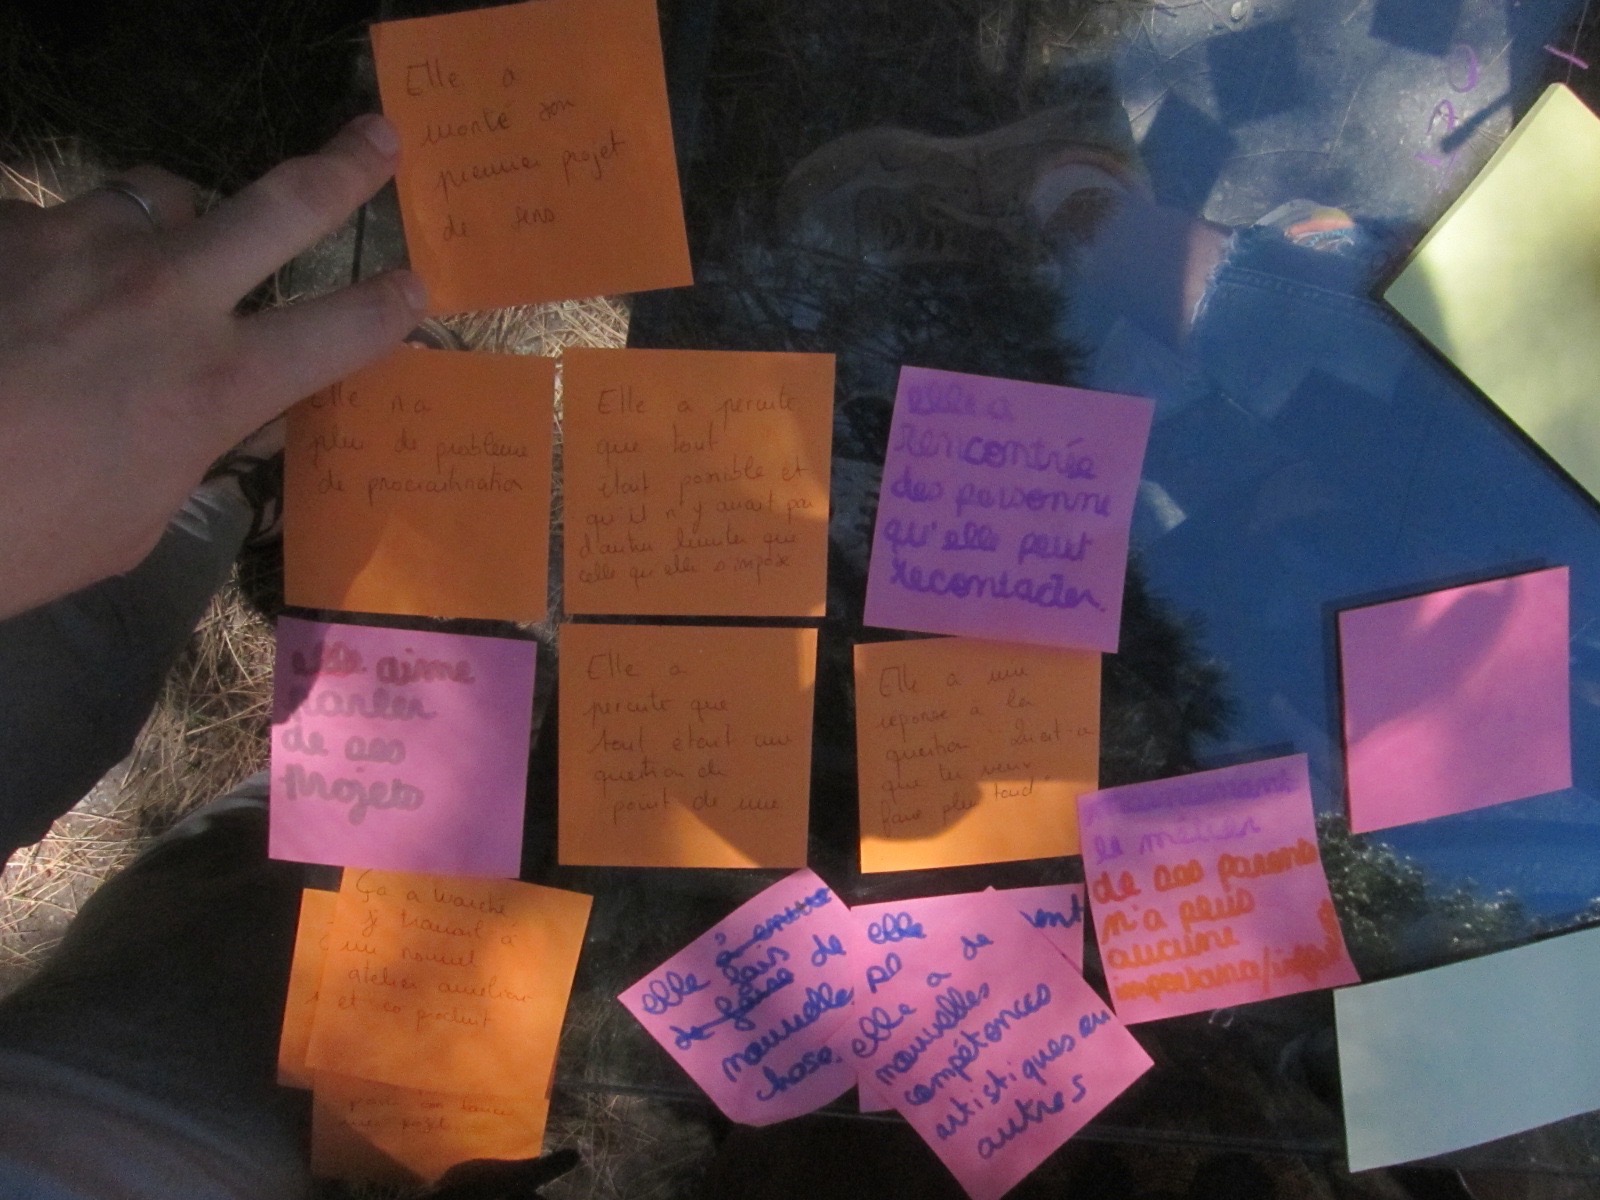 Elle a
monté son
premier projet
de sens
Elle n'a
plus de problème
de procrastination
Elle a percuté
que tout
était possible et
qu'il n'y avait pas
d'autres limites que
celles qu'elle s'impose
elle a
rencontrée
des personne
qu'elle peut
recontacter.
elle aime
parler
de ses
projets
Elle a
percuté que
tout était une
question de
point de vue
Elle a une
réponse à la
question "Qu'est-ce
que tu veux
faire plus tard"
Maintenant
le métier
de ses parents
n'a plus
aucune
importance/
Ça a marché
je travail à
un nouvel
atelier
et co produit
projet
elle
fais de
nouvelle
chose.
elle
de
vent
elle a
nouvelles
compétences
artistiques ou
autres